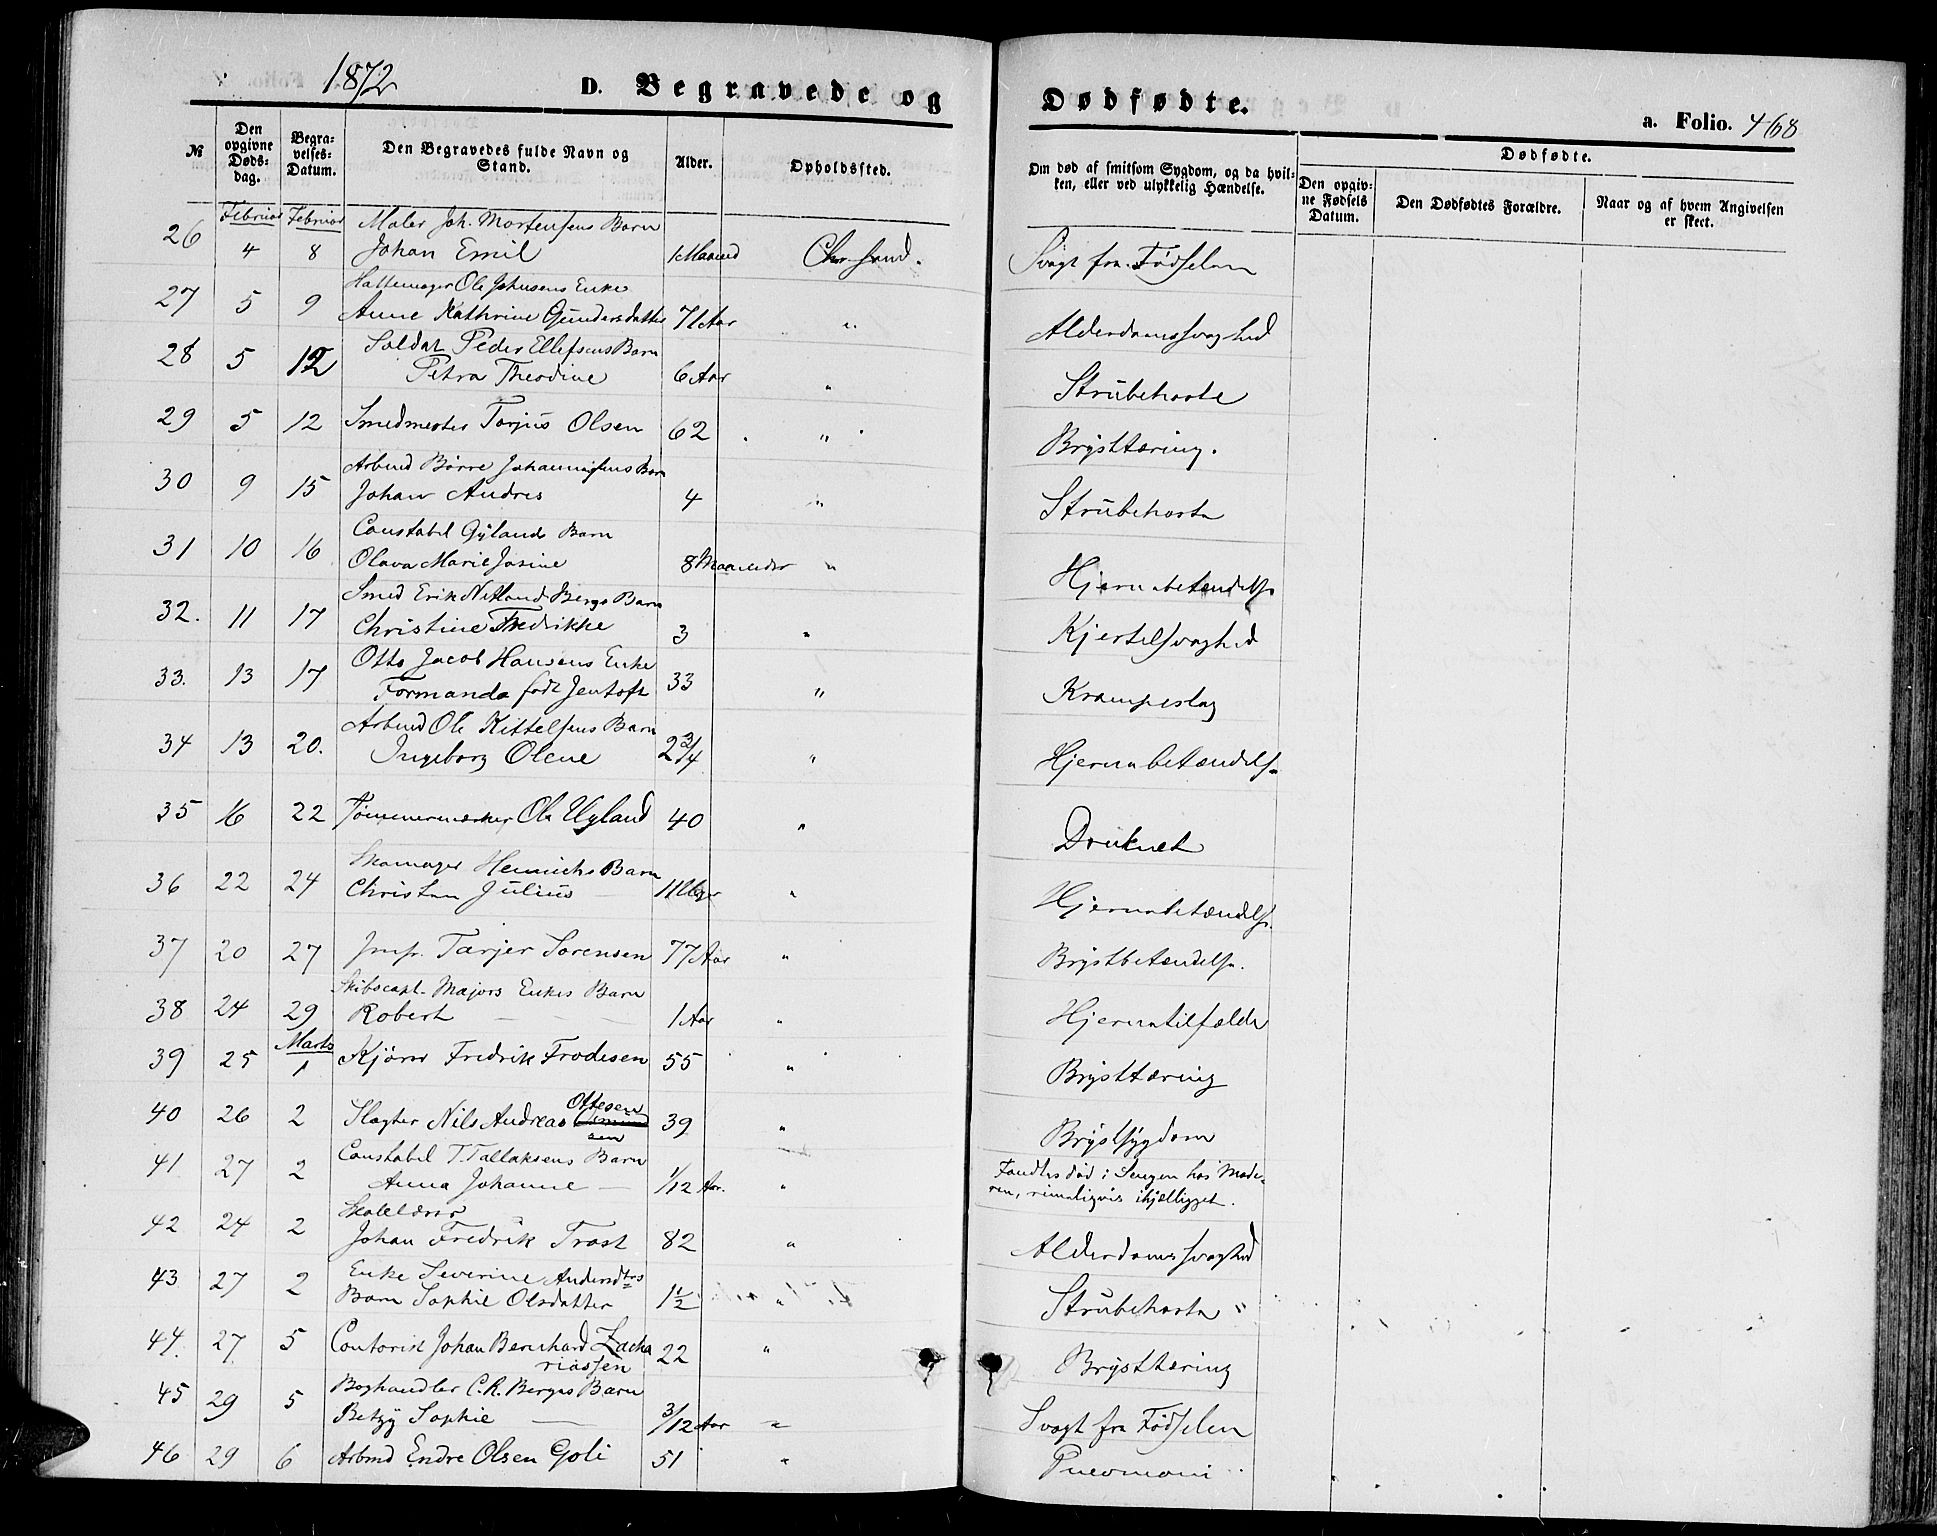 1872
D. Begravede og Dødfødte.
a. Folio. 468
№
Den opgivne Døds-dag.
Begra-velses-Datum.
Den Begravedes fulde Navn og Stand.
Alder.
Opholdssted.
Om død af smitsom Sygdom, og da hvil-ken, eller ved ulykkelig Hændelse.
Dødfødte.
Den opgiv-ne Fødsels Datum.
Den Dødfødtes Forældre.
Naar og af hvem Angivelsen er skeet.
Februar Februar Maler Joh. Mortensens Barn
26 4 8 Johan Emil 1 Maaned Chr.sand. Svagt fra Fødselen
Hattemager Ole Johnsens Enke
27 5 9 Anne Kathrine Gundersdatter 71 Aar " Alderdomssvaghed
Soldat Peder Ellefsens Barn
28 5 12 Petra Theodine 6 Aar " Strubehoste
29 5 12 Smedmester Torjus Olsen 62 " Brysttæring.
Arbmd Børre Johannesens Barn
30 9 15 Johan Andres 4 " Strubehoste
Constabel Gylands Barn
31 10 16 Olava Marie Josine 8 Maaneder " Hjernebetændelse
Smed Erik Netland Bergs Barn
32. 11 17 Christine Fredrikke 3 " Kjertelsvaghed
Otto Jacob Hansens Enke
33. 13 17 Formanda født Jentoft 33 " Krampeslag
Arbmd Ole Kittelsens Barn
34 13 20. Ingeborg Olene 2 3/4 " Hjernebetændelse
35 16 22 Tømmermærker Ole Ugland 40 " Druknet
Skomager Heinrichs Barn
36 22 24 Christen Julius 11 Uger " Hjernebetændelse.
37 20 27 Jmfr. Tarjer Sørensen 77 Aar " Brystbetændelse.
Skibscapt. Majors Enkes Barn
38 24 29 Robert 1 Aar " Hjernetilfælde
Marts
39 25 1 Kjører Fredrik Frodesen 55 " Brysttæring
40 26 2 Slagter Nils Andreas Ottesen 39 " Brystsygdom
Constabel T. Tallaksens Barn
41 27 2 Anna Johanne 1/12 Aar. " Fandtes død i Sengen hos Mode-
ren, rimeligvis ihjelligget.
Skolelærer
42 24 2 Johan Fredrik Trost 82 " Alderdomssvaghed
Enke Severine Andersdtrs
43 27 2 Barn Sophie Olsdatter 1 1/2 " Strubehoste
44. 27 5 Contorist Johan Bernhard Zacha
riassen 22 " Brysttæring
Boghandler C. R. Berges Barn
45 29 5 Betzy Sophie 3/12 Aar " Svagt fra Fødselen
46 29 6 Arbmd Endre Olsen Goli 51 " Pneomoni